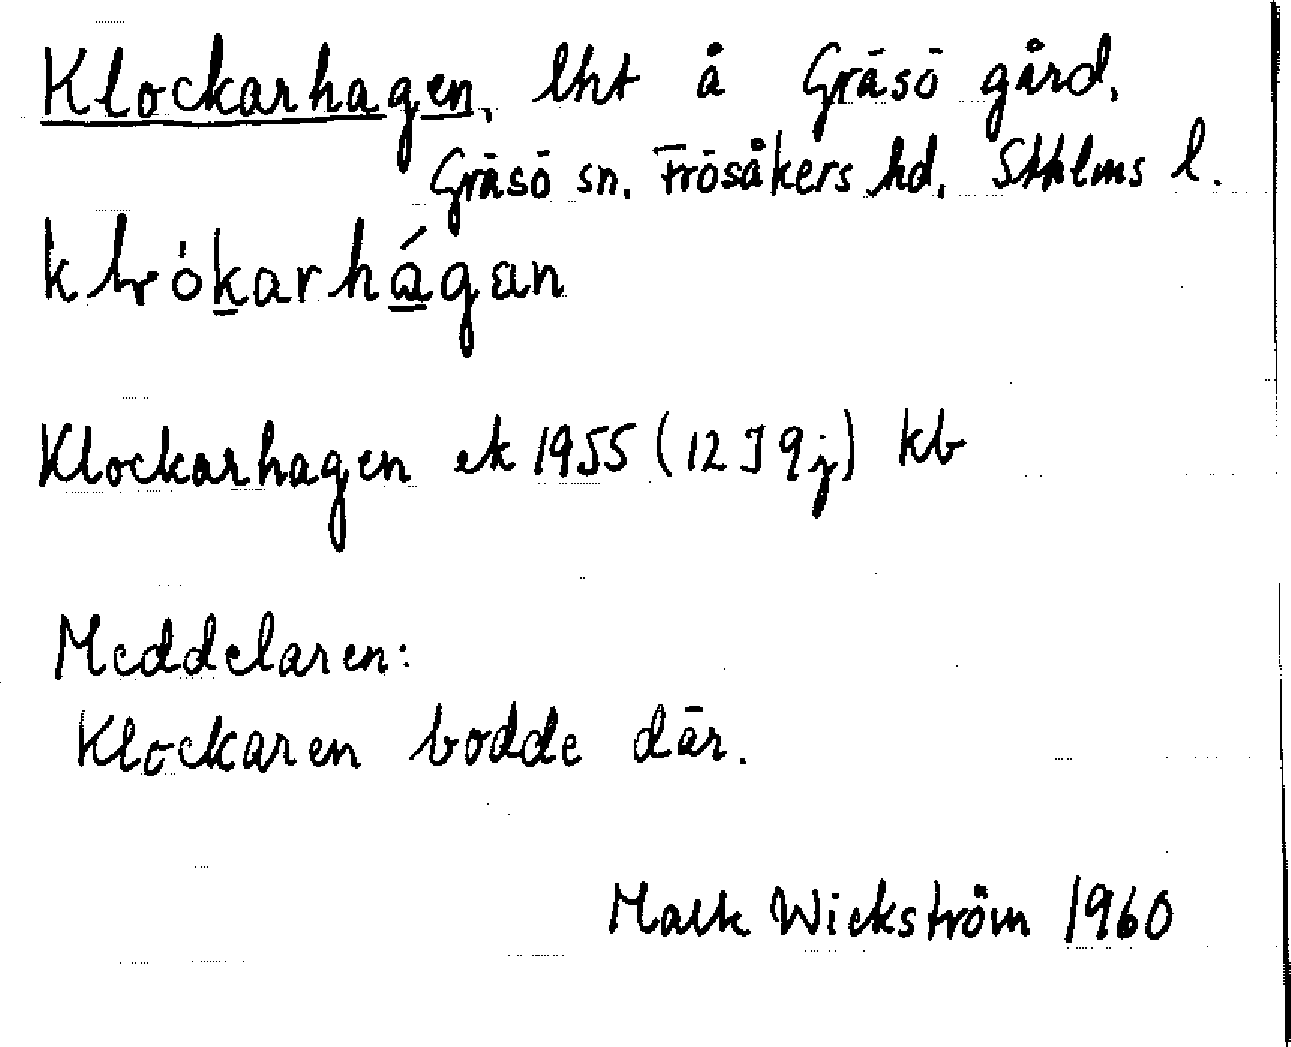 Klockarhagen, lht å Gräsö gård,
Gräsö sn. Frösåkers hd, Sthlms l.
Klockarhagen ek 1955 (12 I 9j) kb
Meddelaren:
Klockaren bodde där.
Wickström 1960